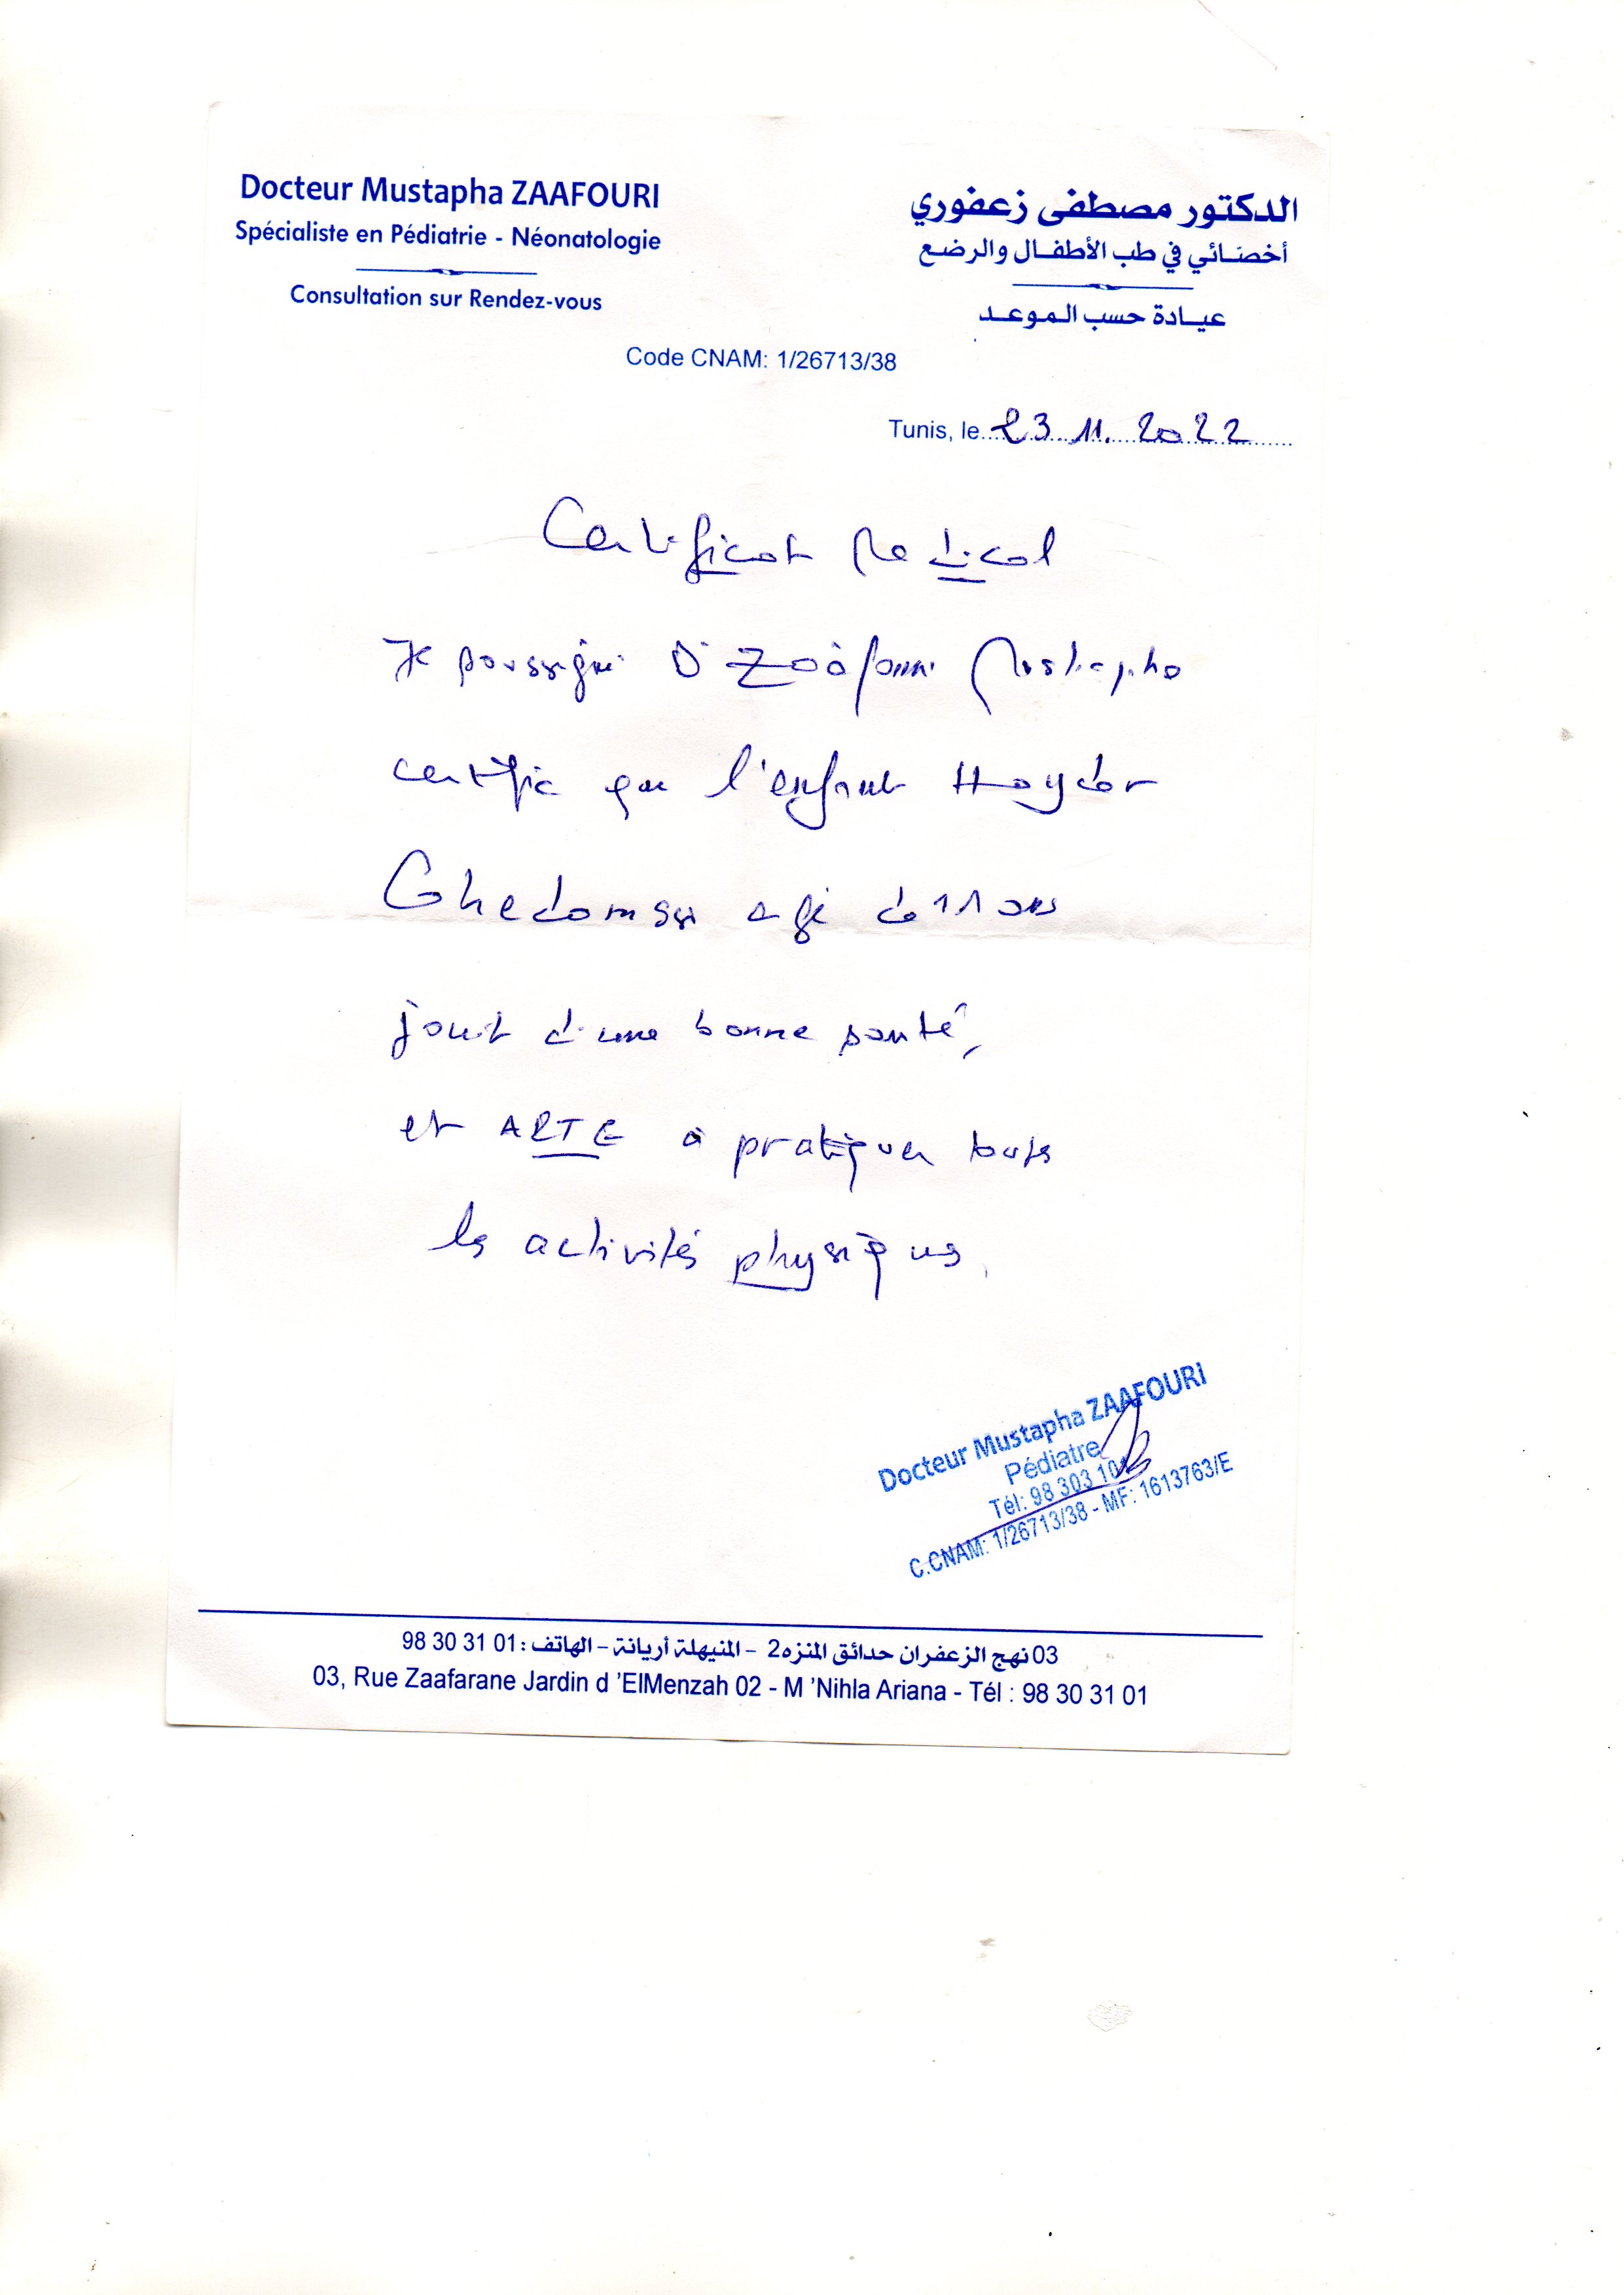 Docteur Mustapha ZAAFOURI
Spécialiste en Pédiatrie - Néonatologie
Consultation sur Rendez-vous
الدكتور مصطفى زعفوري
أخصائي في طب الأطفال والرضع
عيادة حسب الموعد
Code CNAM: 1/26713/38
Tunis, le 23.11.2022
Certificat Medical
Je soussigné Dr Zaàfouri Mustapha
certifie que l'enfant Haydar
Ghedamssi agé de 11 ans
jouit d'une bonne santé,
et APTE à pratiquer touts
les activités physiques.
Docteur Mustapha ZAAFOURI
Pédiatre
Tél: 98 303 101
C.CNAM: 1/26713/38 - MF: 1613763/E
03 نهج الزعفران حدائق المنزه 2 - المنيهلة أريانة - الهاتف : 01 31 30 98
03, Rue Zaafarane Jardin d 'ElMenzah 02 - M 'Nihla Ariana - Tél : 98 30 31 01